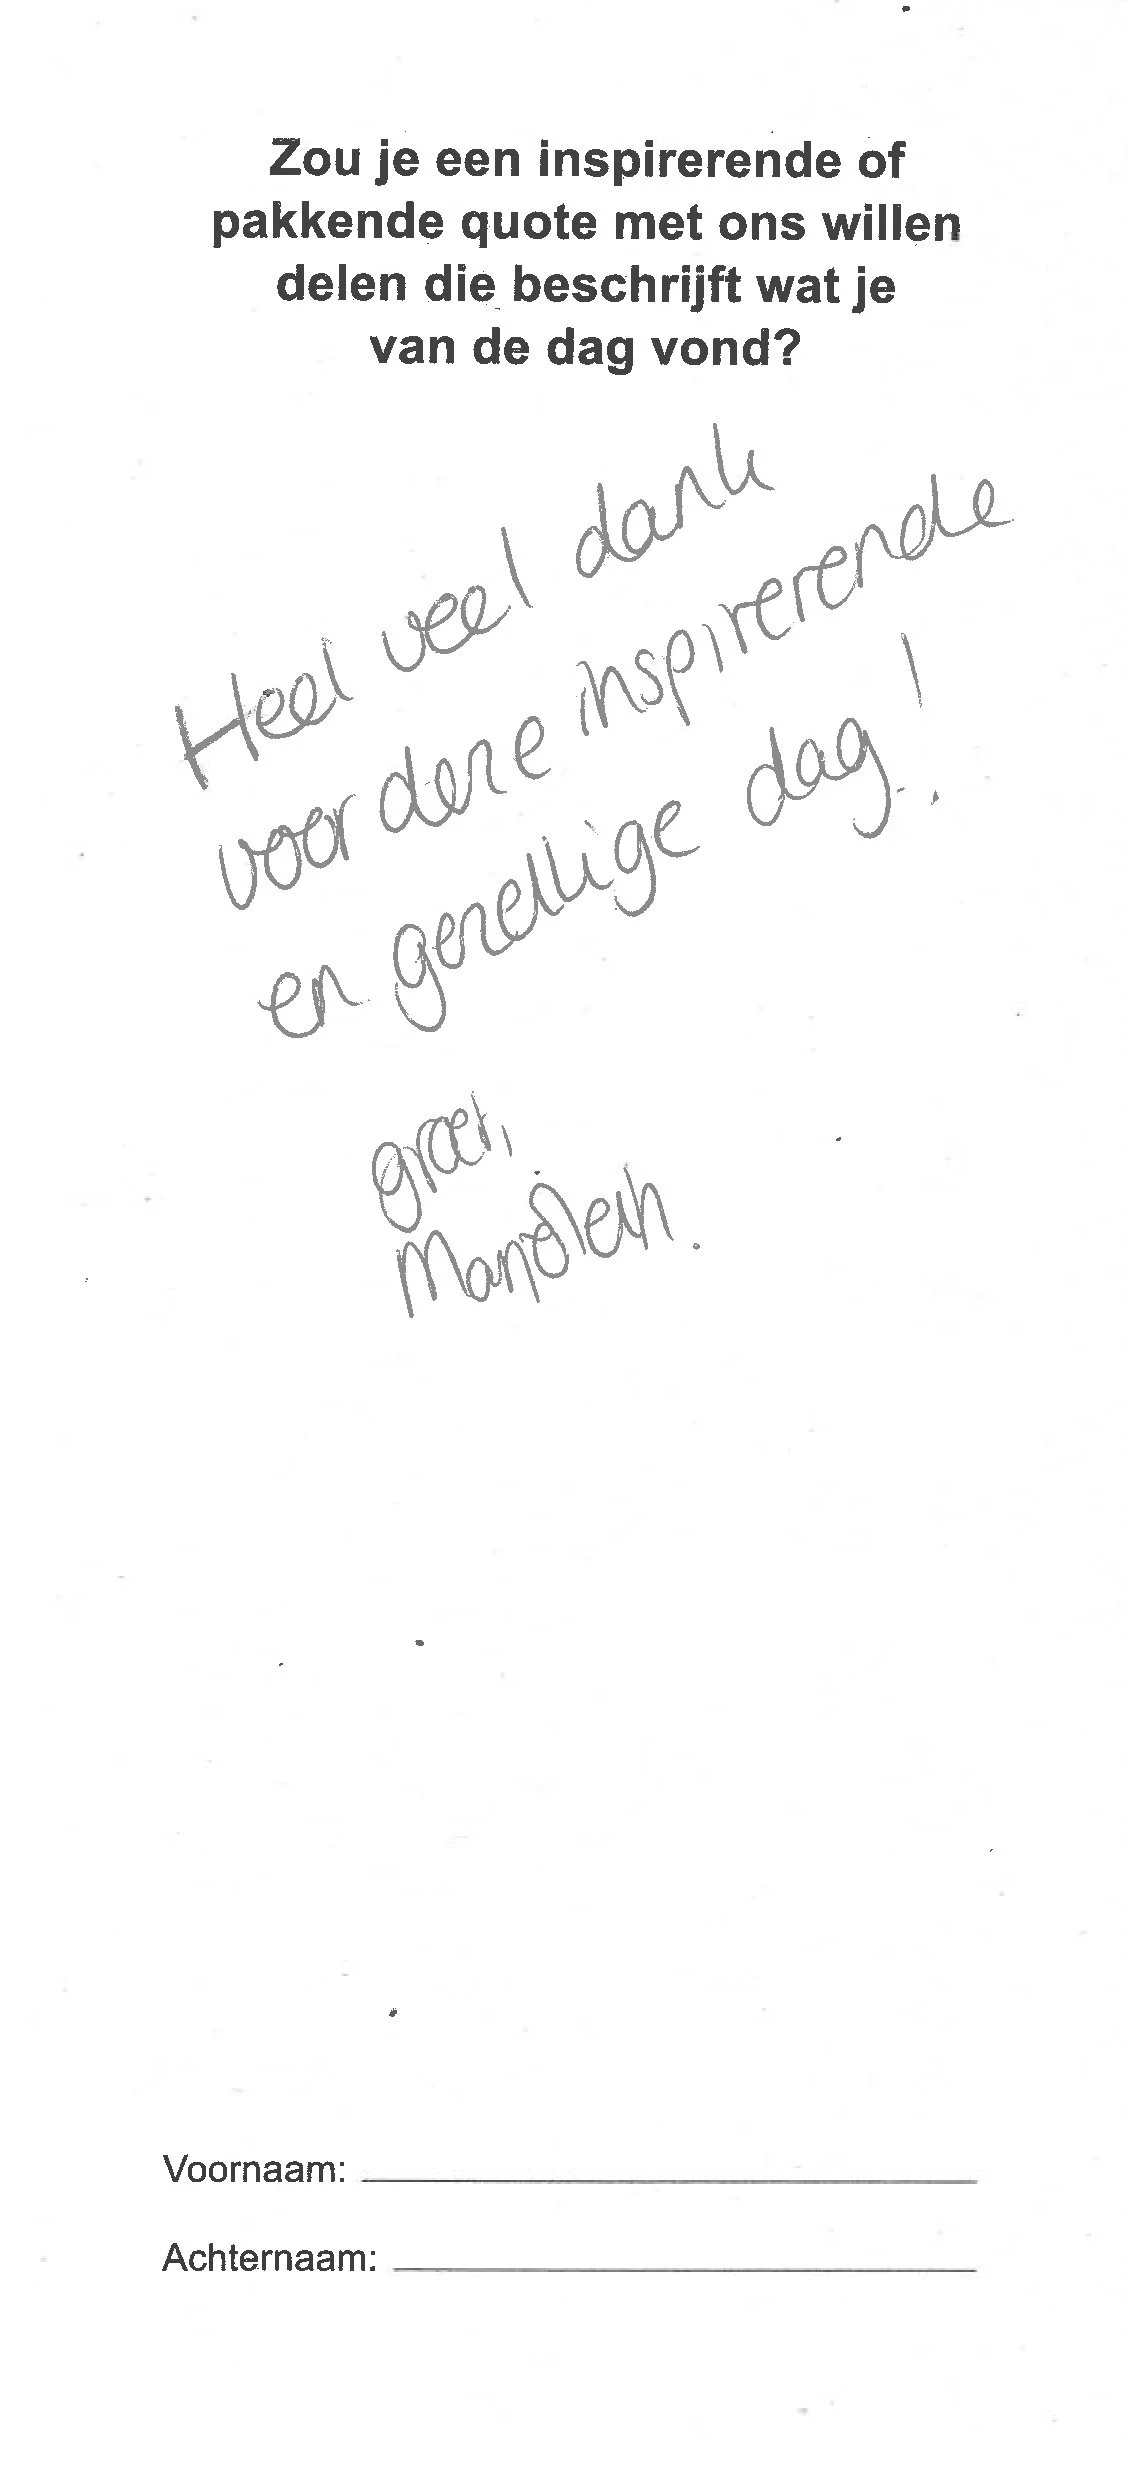 Zou je een inspirerende of
pakkende quote met ons willen
delen die beschrijft wat je
van de dag vond?
Heel veel dank
voor deze inspirerende
en gezellige dag!
groet,
Marjolein.
Voornaam:
Achternaam: